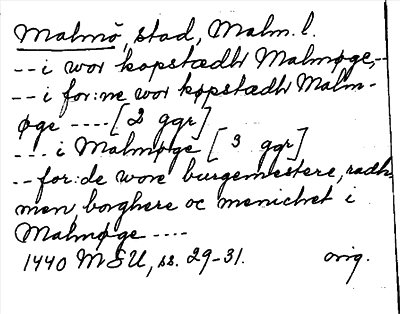 Malmö, stad, Malm. l.
-- i wor køpstædhr Malmøge,--
-- i for:ne wor køpstædh Malm-
øge ---- [2 ggr]
--- i Malmøge [3 ggr]
-- for:de wore burgemestere, radh-
men, borghere oc menichet i
Malmøge ----
1440 MSU, ss. 29-31. orig.